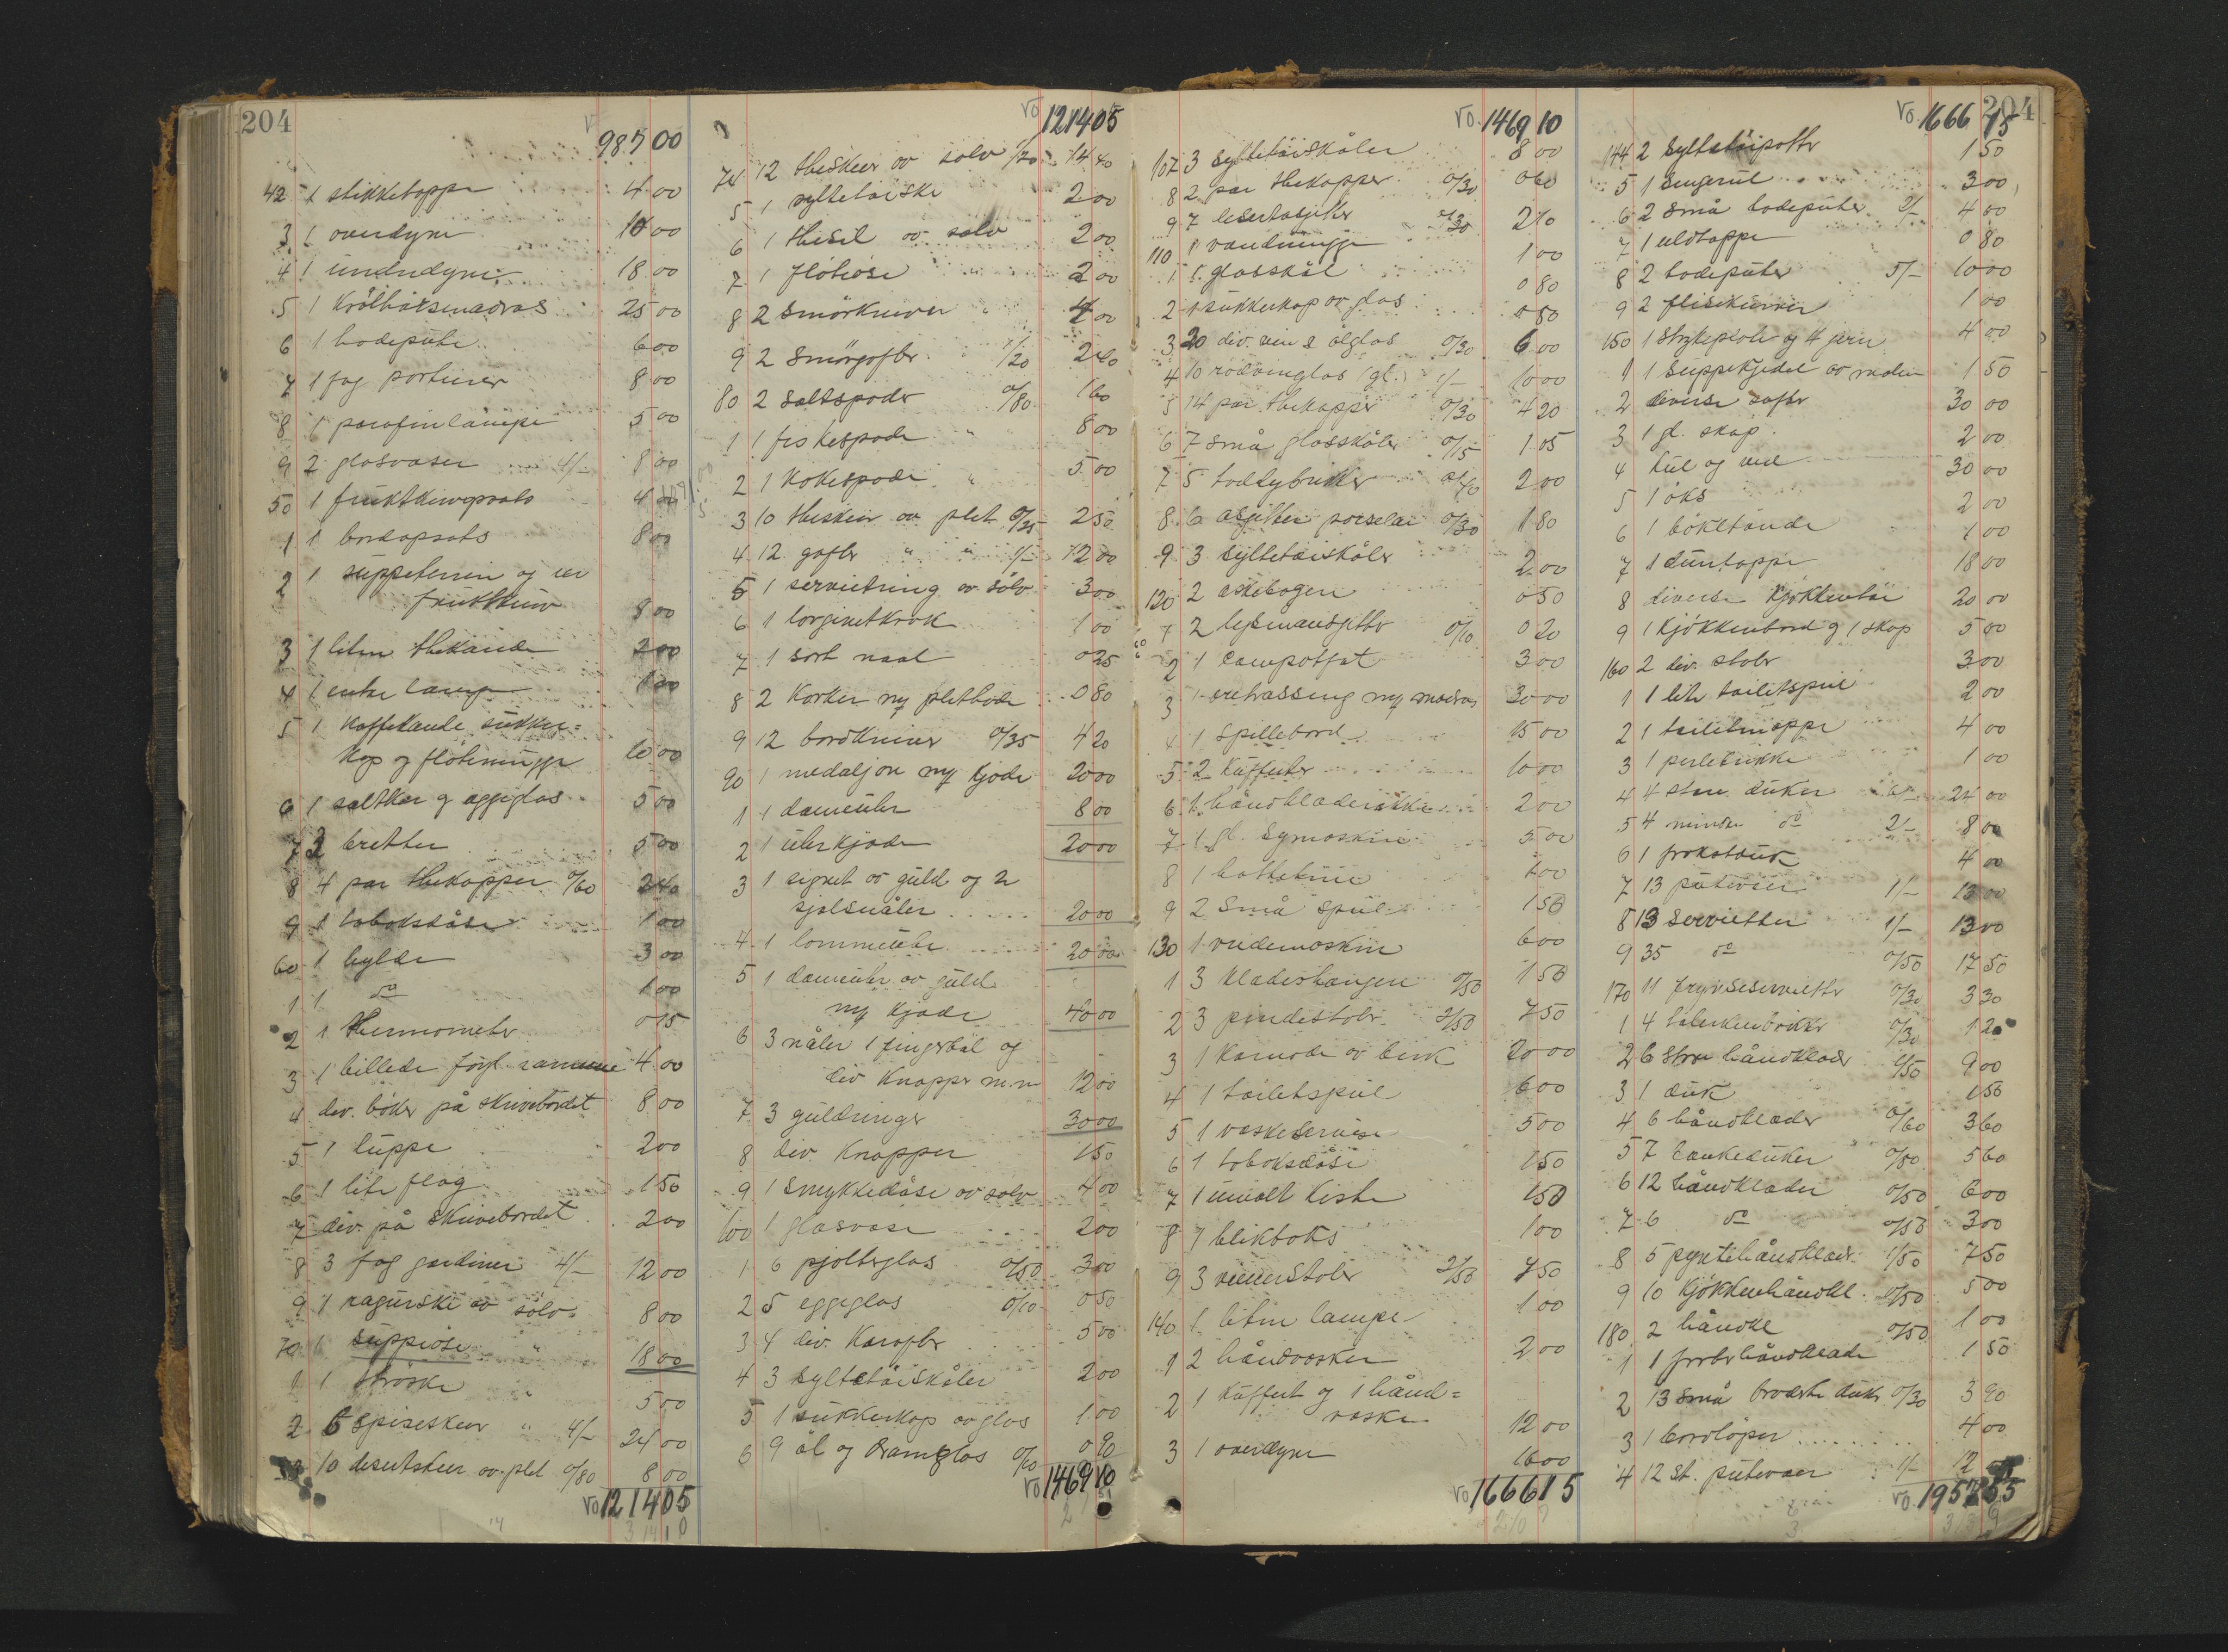 204
987 00
42 1 stikketeppe 4 00
3 1 overdyne 10 00
4 1 underdyne 18 00
5 1 Krølhårsmadras 25 00
6 1 hodepute 6 00
7 1 fag portierer 8 00
8 1 parafinlampe 5 00
9 2 glasvaser 4/- 8 00
50 1 fruktkurvopsats 4 00
1 1 bordopsats 8 00
2 1 suppeterrin og en
fruktkurv 8 00
3 1 liten thekande 2 00
4 1 lampe 1 00
5 1 Kaffekande sukker=
Kop og fløtemugge 10 00
6 1 saltkar og eggeglas 5 00
7 3 bretter 5 00
8 4 par thekopper 0/60 2 40
9 1 tobaksdåse 1 00
60 1 hylde 3 00
1 1 do 1 00
2 1 thermometer 0 15
3 1 billede forgl. ramme 4 00
4 div. bøker på skrivebordet 8 00
5 1 luppe 2 00
6 1 lite flag 1 50
7 div. på skrivebordet 2 00
8 3 fag gardiner 4/- 12 00
9 1 raguske av sølv 8 00
70 1 suppeøse " 18 00
1 1 strøske " 5 00
2 6 spiseskeer " 4/- 24 00
10 desertskeer av plet 0/80 8 00
ro 1214 05
ro 1214 05
74 12 theskeer av sølv 1/20 14 40
5 1 syltetøiske 2 00
6 1 thesil av sølv 2 00
7 1 fløteøse 2 00
8 2 smørkniver " 4 00
9 2 smørgafler 1/20 2 40
80 2 saltspader 0/80 1 60
1 1 fiskespade " 8 00
2 1 Kakespade " 5 00
3 10 theskeer av plet 0/25 2 50
4 12 gafler " " 1/- 12 00
5 1 serviettring av sølv 3 00
6 1 lorgnetkrok 1 00
7 1 sort naal 0 25
8 2 Korker m/ plethode 0 80
9 12 bordkniver 0/35 4 20
90 1 medaljon m/ kjede 20 00
1 1 dameuhr 8 00
2 1 uhrkjede 20 00
3 1 signet av guld og 2
sjalsnåler 20 00
4 1 lommeuhr 20 00
5 1 dameuhr av guld
m/ kjede 40 00
6 3 nåler 1 fingerbøl og
div Knapper m.m 12 00
7 3 guldringer 30 00
8 div. Knapper 1 50
9 1 smykkedåse av sølv 4 00
100 1 glasvase 2 00
1 6 pjolterglas 0/50 3 00
2 5 eggeglas 0/10 0 50
3 4 div. Karafler 5 00
4 3 syltetøiskåler 2 00
5 1 sukkerkop av glas 1 00
6 9 øl og dramglas 0/10 0 90
ro 1469 10
ro. 1469 10
107 3 syltetøiskåler 8 00
8 2 par thekopper 0/30 0 60
9 7 desertasjetter 0/30 2 10
110 1 vandmugge 1 00
1 1 glasskål 0 80
2 1 sukkerkop av glas 0 50
3 20 div. vin & ølglas 0/30 6 00
4 10 rødvinglas (gl.) 1/- 10 00
5 14 par thekopper 0/30 4 20
6 7 små glasskåler 0/15 1 05
7 5 toddybrikker 0/40 2 00
8 6 asjetter porselæn 0/30 1 80
9 3 syltetøiskåler 2 00
120 2 askebæger 0 50
1 2 0/10 0 20
2 1 Campotfat 3 00
3 1 m/ madras 30 00
4 1 spillebord 15 00
5 2 Kufferter 10 00
6 1 2 00
7 1 gl. symaskin 5 00
8 1 1 00
9 2 små speile 1 50
130 1 vridemaskin 6 00
1 3 klædeshænger 0/50 1 50
2 3 pindestoler 2/50 7 50
3 1 Komode av birk 20 00
4 1 toiletspeil 6 00
5 1 vaskeservise 5 00
6 1 tobaksdåse 1 50
7 1 umalt kiste 1 50
8 1 blikboks 1 00
9 3 wienerstoler 2/50 7 50
140 1 liten lampe 1 00
1 2 håndvesker 2 00
2 1 Kuffert og 1 hånd=
veske 12 00
3 1 overdyne 16 00
ro 1666 15
204
ro. 1666 15
144 2 syltetøipotter 1 50
5 1 3 00
6 2 små hodeputer 2/- 4 00
7 1 uldteppe 0 80
8 2 hodeputer 5/- 10 00
9 2 fliskurver 1 00
150 1 strykeplate og 4 jern 4 00
1 1 suppekjedel av 1 50
2 diverse safter 30 00
3 1 gl. skap 2 00
4 kul og ved 30 00
5 1 øks 2 00
6 1 bøketønde 1 00
7 1 dunteppe 18 00
8 diverse kjøkkentøi 20 00
9 1 kjøkkenbord og 1 skap 5 00
160 2 div. stoler 3 00
1 1 lite toiletspeil 2 00
2 1 toiletmappe 4 00
3 1 perlebrikke 1 00
4 4 store duker 6/- 24 00
5 4 mindre do 2/- 8 00
6 1 frokostduk 4 00
7 13 putevaer 1/- 13 00
8 13 servietter 1/- 13 00
9 35 do 0/50 17 50
170 11 frynseservietter 0/30 3 30
1 4 tallerkenbrikker 0/30 1 20
2 6 store håndklæder 1/50 9 00
3 1 duk 1 50
4 6 håndklæder 0/60 3 60
5 7 bankeduker 0/80 5 60
6 12 håndklæder 0/50 6 00
7 6 do 0/50 3 00
8 5 pyntehåndklæder 1/50 7 50
9 10 kjøkkenhåndkl. 0/50 5 00
180 2 håndkl 0/50 1 00
1 1 frotehåndklæde 1 50
2 13 små broderte duker 0/30 3 90
3 1 bordløper 4 00
4 12 st. putevaer 1/- 12 00
ro. 1957 55